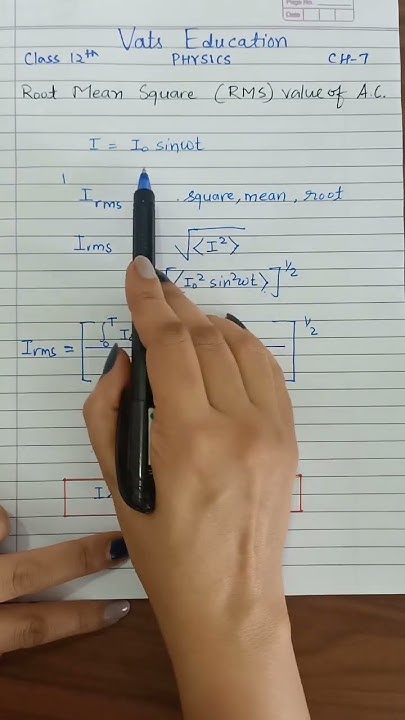 Page No.
Date
Vats Education
Class 12th PHYSICS CH-7
Root Mean Square (RMS) value of A.C.
I = I₀ sinωt
I rms square, mean, root
I rms √⟨I²⟩
⟨I₀² sin²ωt⟩]^1/2
I rms = [ ∫₀ᵀ I₀ ]^1/2
I